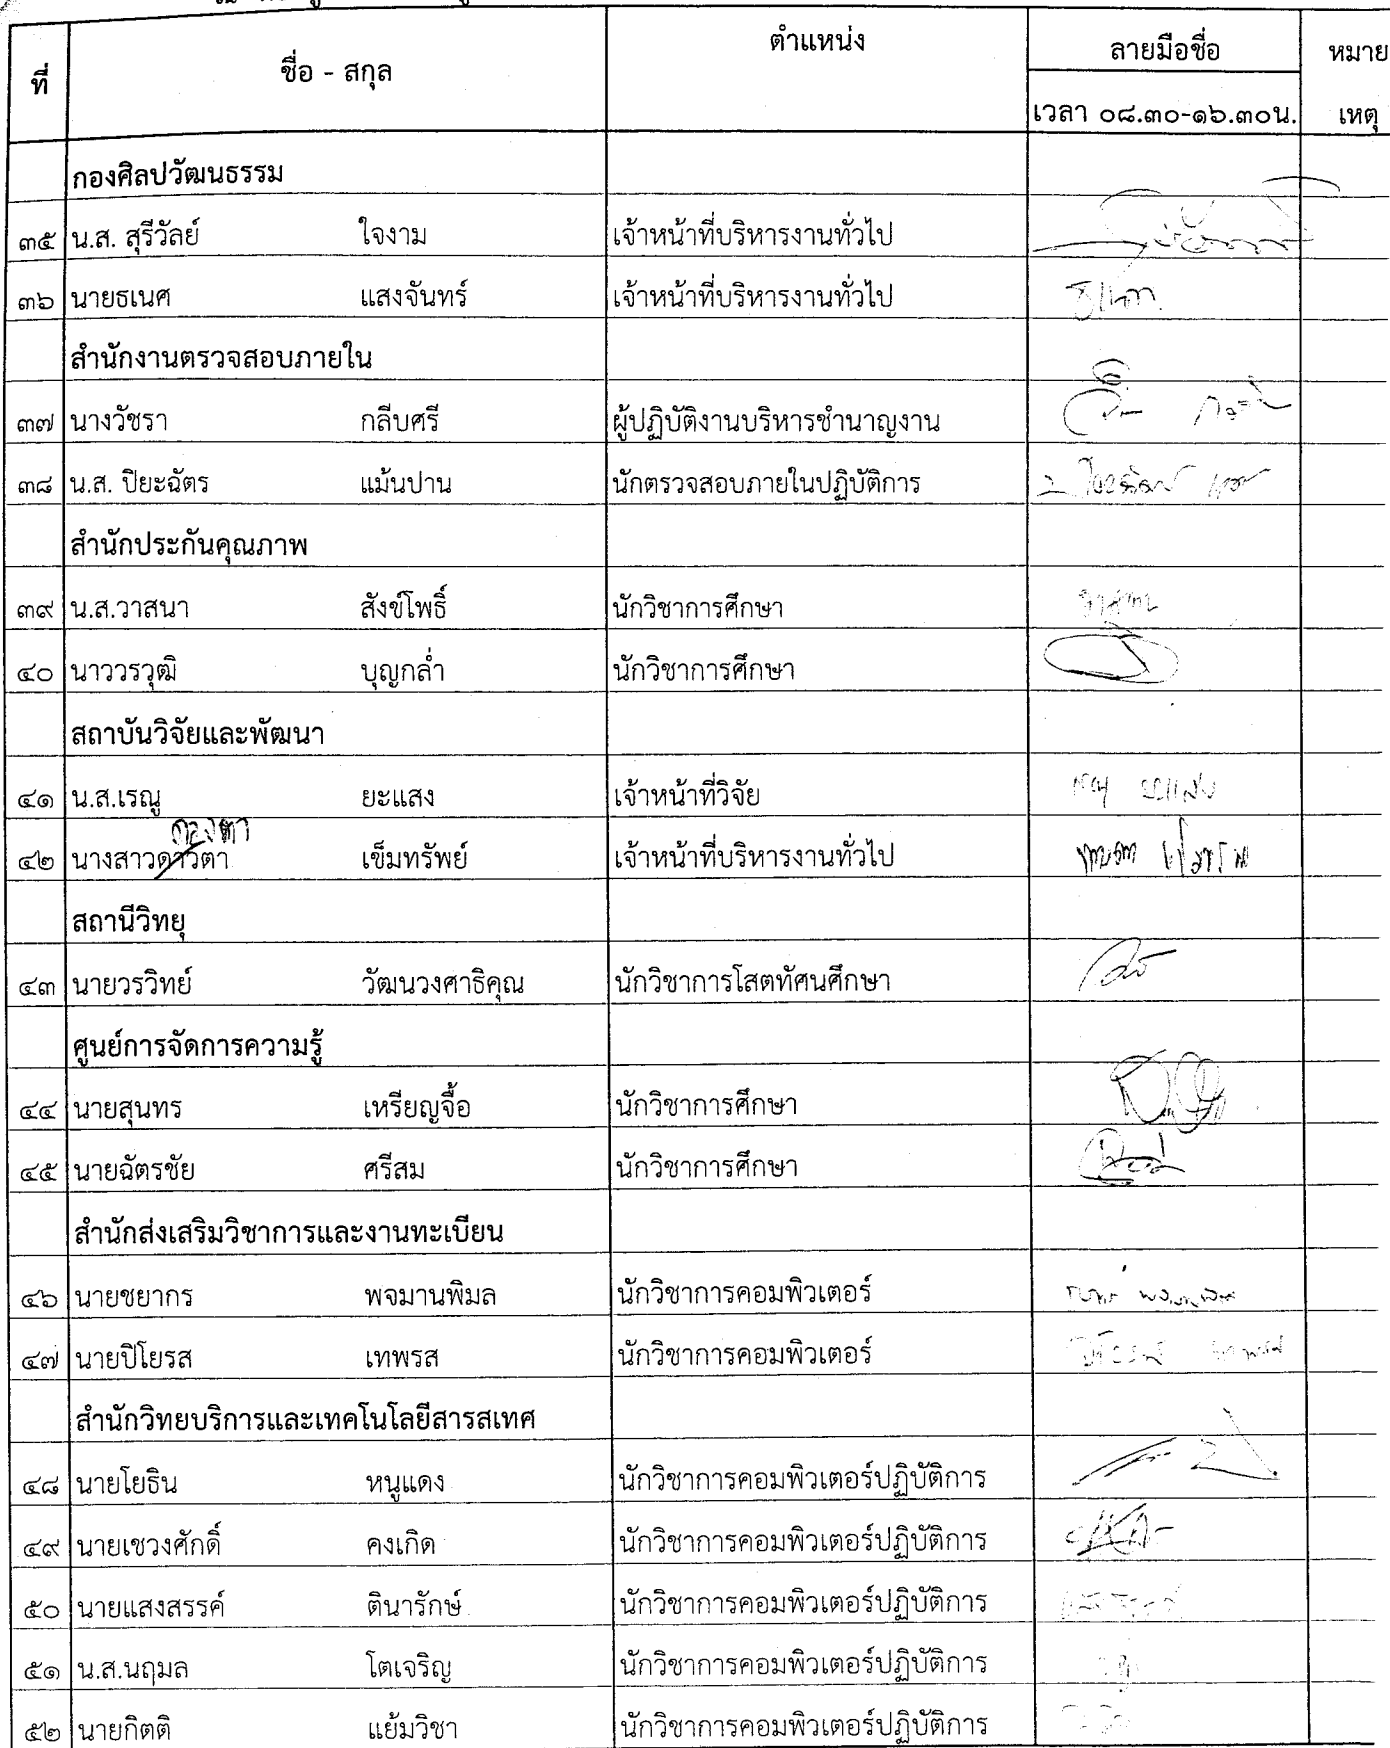 ที่ ชื่อ - สกุล ตำแหน่ง ลายมือชื่อ หมาย
เวลา ๐๘.๓๐-๑๖.๓๐น. เหตุ
กองศิลปวัฒนธรรม
๓๕ น.ส. สุรีวัลย์ ใจงาม เจ้าหน้าที่บริหารงานทั่วไป
๓๖ นายธเนศ แสงจันทร์ เจ้าหน้าที่บริหารงานทั่วไป ธเนศ
สำนักงานตรวจสอบภายใน
๓๗ นางวัชรา กลีบศรี ผู้ปฏิบัติงานบริหารชำนาญงาน
๓๘ น.ส. ปิยะฉัตร แม้นปาน นักตรวจสอบภายในปฏิบัติการ
สำนักประกันคุณภาพ
๓๙ น.ส.วาสนา สังข์โพธิ์ นักวิชาการศึกษา วาสนา
๔๐ นาววรวุฒิ บุญกล่ำ นักวิชาการศึกษา
สถาบันวิจัยและพัฒนา
๔๑ น.ส.เรณู ยะแสง เจ้าหน้าที่วิจัย เรณู ยะแสง
๔๒ นางสาวดาวิตา เข็มทรัพย์ เจ้าหน้าที่บริหารงานทั่วไป
สถานีวิทยุ
๔๓ นายวรวิทย์ วัฒนวงศาธิคุณ นักวิชาการโสตทัศนศึกษา
ศูนย์การจัดการความรู้
๔๔ นายสุนทร เหรียญจื้อ นักวิชาการศึกษา
๔๕ นายฉัตรชัย ศรีสม นักวิชาการศึกษา
สำนักส่งเสริมวิชาการและงานทะเบียน
๔๖ นายชยากร พจมานพิมล นักวิชาการคอมพิวเตอร์
๔๗ นายปิโยรส เทพรส นักวิชาการคอมพิวเตอร์
สำนักวิทยบริการและเทคโนโลยีสารสเทศ
๔๘ นายโยธิน หนูแดง นักวิชาการคอมพิวเตอร์ปฏิบัติการ
๔๙ นายเชวงศักดิ์ คงเกิด นักวิชาการคอมพิวเตอร์ปฏิบัติการ
๕๐ นายแสงสรรค์ ตินารักษ์ นักวิชาการคอมพิวเตอร์ปฏิบัติการ
๕๑ น.ส.นฤมล โตเจริญ นักวิชาการคอมพิวเตอร์ปฏิบัติการ
๕๒ นายกิตติ แย้มวิชา นักวิชาการคอมพิวเตอร์ปฏิบัติการ